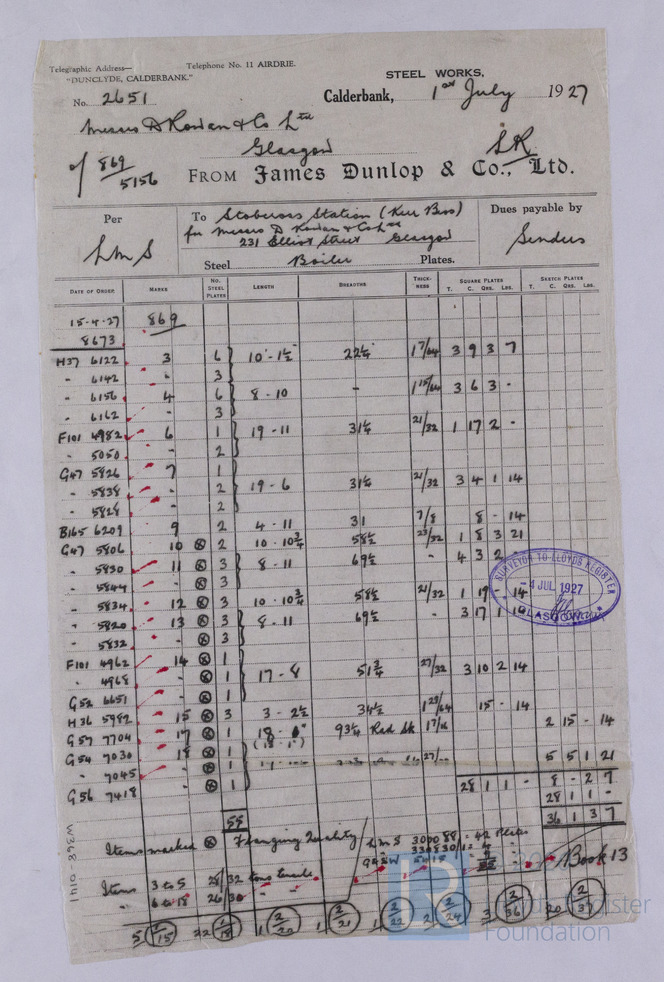 Telegraphic Address— Telephone No. 11 AIRDRIE.
"DUNCLYDE, CALDERBANK."
STEEL WORKS,
No. 2651 Calderbank, 1st July 1927
Messrs D Rowan & Co Ltd
Glasgow
of 869/5156
FROM James Dunlop & Co., Ltd.
Per LMS
To Stobcross Station (Kerr Bros)
for Messrs D Rowan & Co Ltd
231 Elliot Street Glasgow
Steel Boiler Plates.
Dues payable by Senders
DATE OF ORDER MARKS NO. STEEL PLATES LENGTH BREADTHS THICKNESS SQUARE PLATES T. C. Qrs. Lbs. SKETCH PLATES T. C. Qrs. Lbs.
15-4-27 869
8673
H37 6122 3 6 10-1½ 22¼ 1 7/64 3 9 3 7
" 6142 - 3
" 6156 4 6 8-10 - 1 15/64 3 6 3 -
" 6162 - 3
F101 4982 6 1 19-11 31¼ 21/32 1 17 2 -
" 5050 - 2
G47 5826 7 1
" 5838 - 2 19-6 31¼ 21/32 3 4 1 14
" 5828 - 2
B165 6209 9 2 4-11 31 7/8 8 - 14
G47 5806 10 ⊗ 2 10-10¾ 58½ 23/32 1 8 3 21
" 5830 11 ⊗ 3 8-11 69½ - 4 3 2 -
" 5844 - ⊗ 3
" 5834 12 ⊗ 3 10-10¾ 58½ 21/32 1 19 - 14
" 5820 13 ⊗ 3 8-11 69½ - 3 17 1
" 5832 - ⊗ 3
F101 4962 14 ⊗ 1
" 4968 - ⊗ 1 17-8 51¾ 27/32 3 10 2 14
G52 6651 - ⊗ 1
H36 5982 15 ⊗ 3 3-2½ 34½ 1 29/64 15 - 14
G57 7704 17 ⊗ 1 18- 93¼ Rad Sk 2 15 - 14
G54 7030 18 ⊗ 1 5 5 1 21
" 7045 - ⊗ 1
G56 7418 - ⊗ 1
28 1 1 - 8 - 2 7
28 1 1 -
55 36 1 3 7
SURVEYOR TO LLOYDS REGISTER
-4 JUL 1927
GLASGOW
Items marked ⊗ Flanging Quality
LMS 42 Plates
Book 13
Items 3 to 5 28/32 tons tensile
" 6 to 18 26/30 " "
5 2/15 22 2/18 1 2/20 1 2/21 1 2/22 2 2/24 3 2/36 20 2/37
W368-0141
LR
Lloyd's Register
Foundation